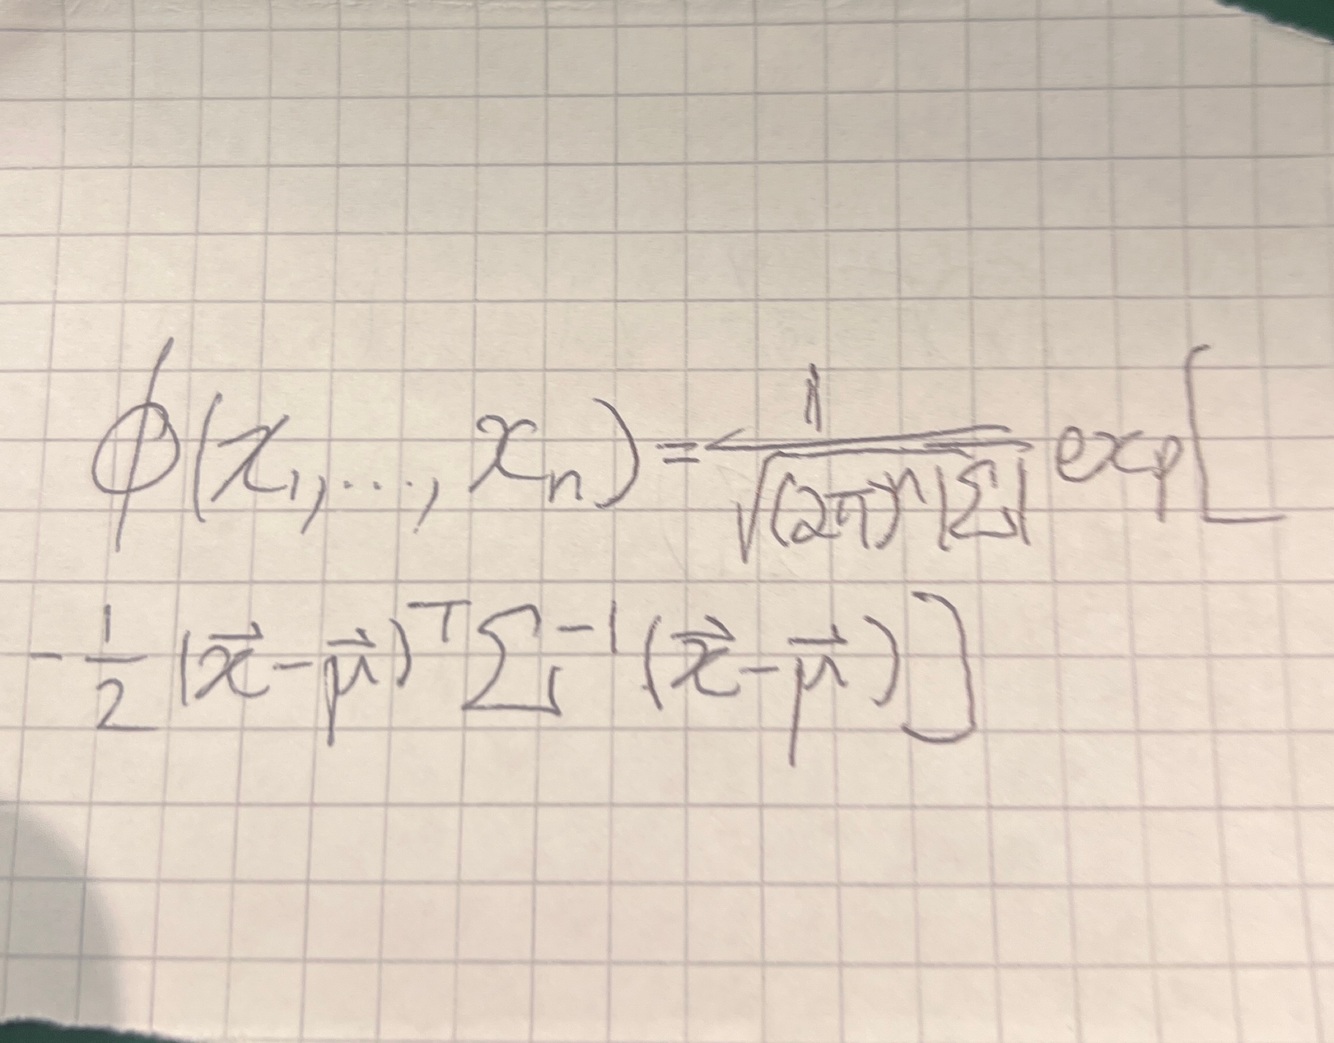 ϕ(x₁,...,xₙ)=1/√((2π)ⁿ|Σ|) exp[
-1/2 (x⃗-μ⃗)ᵀΣ⁻¹(x⃗-μ⃗)]